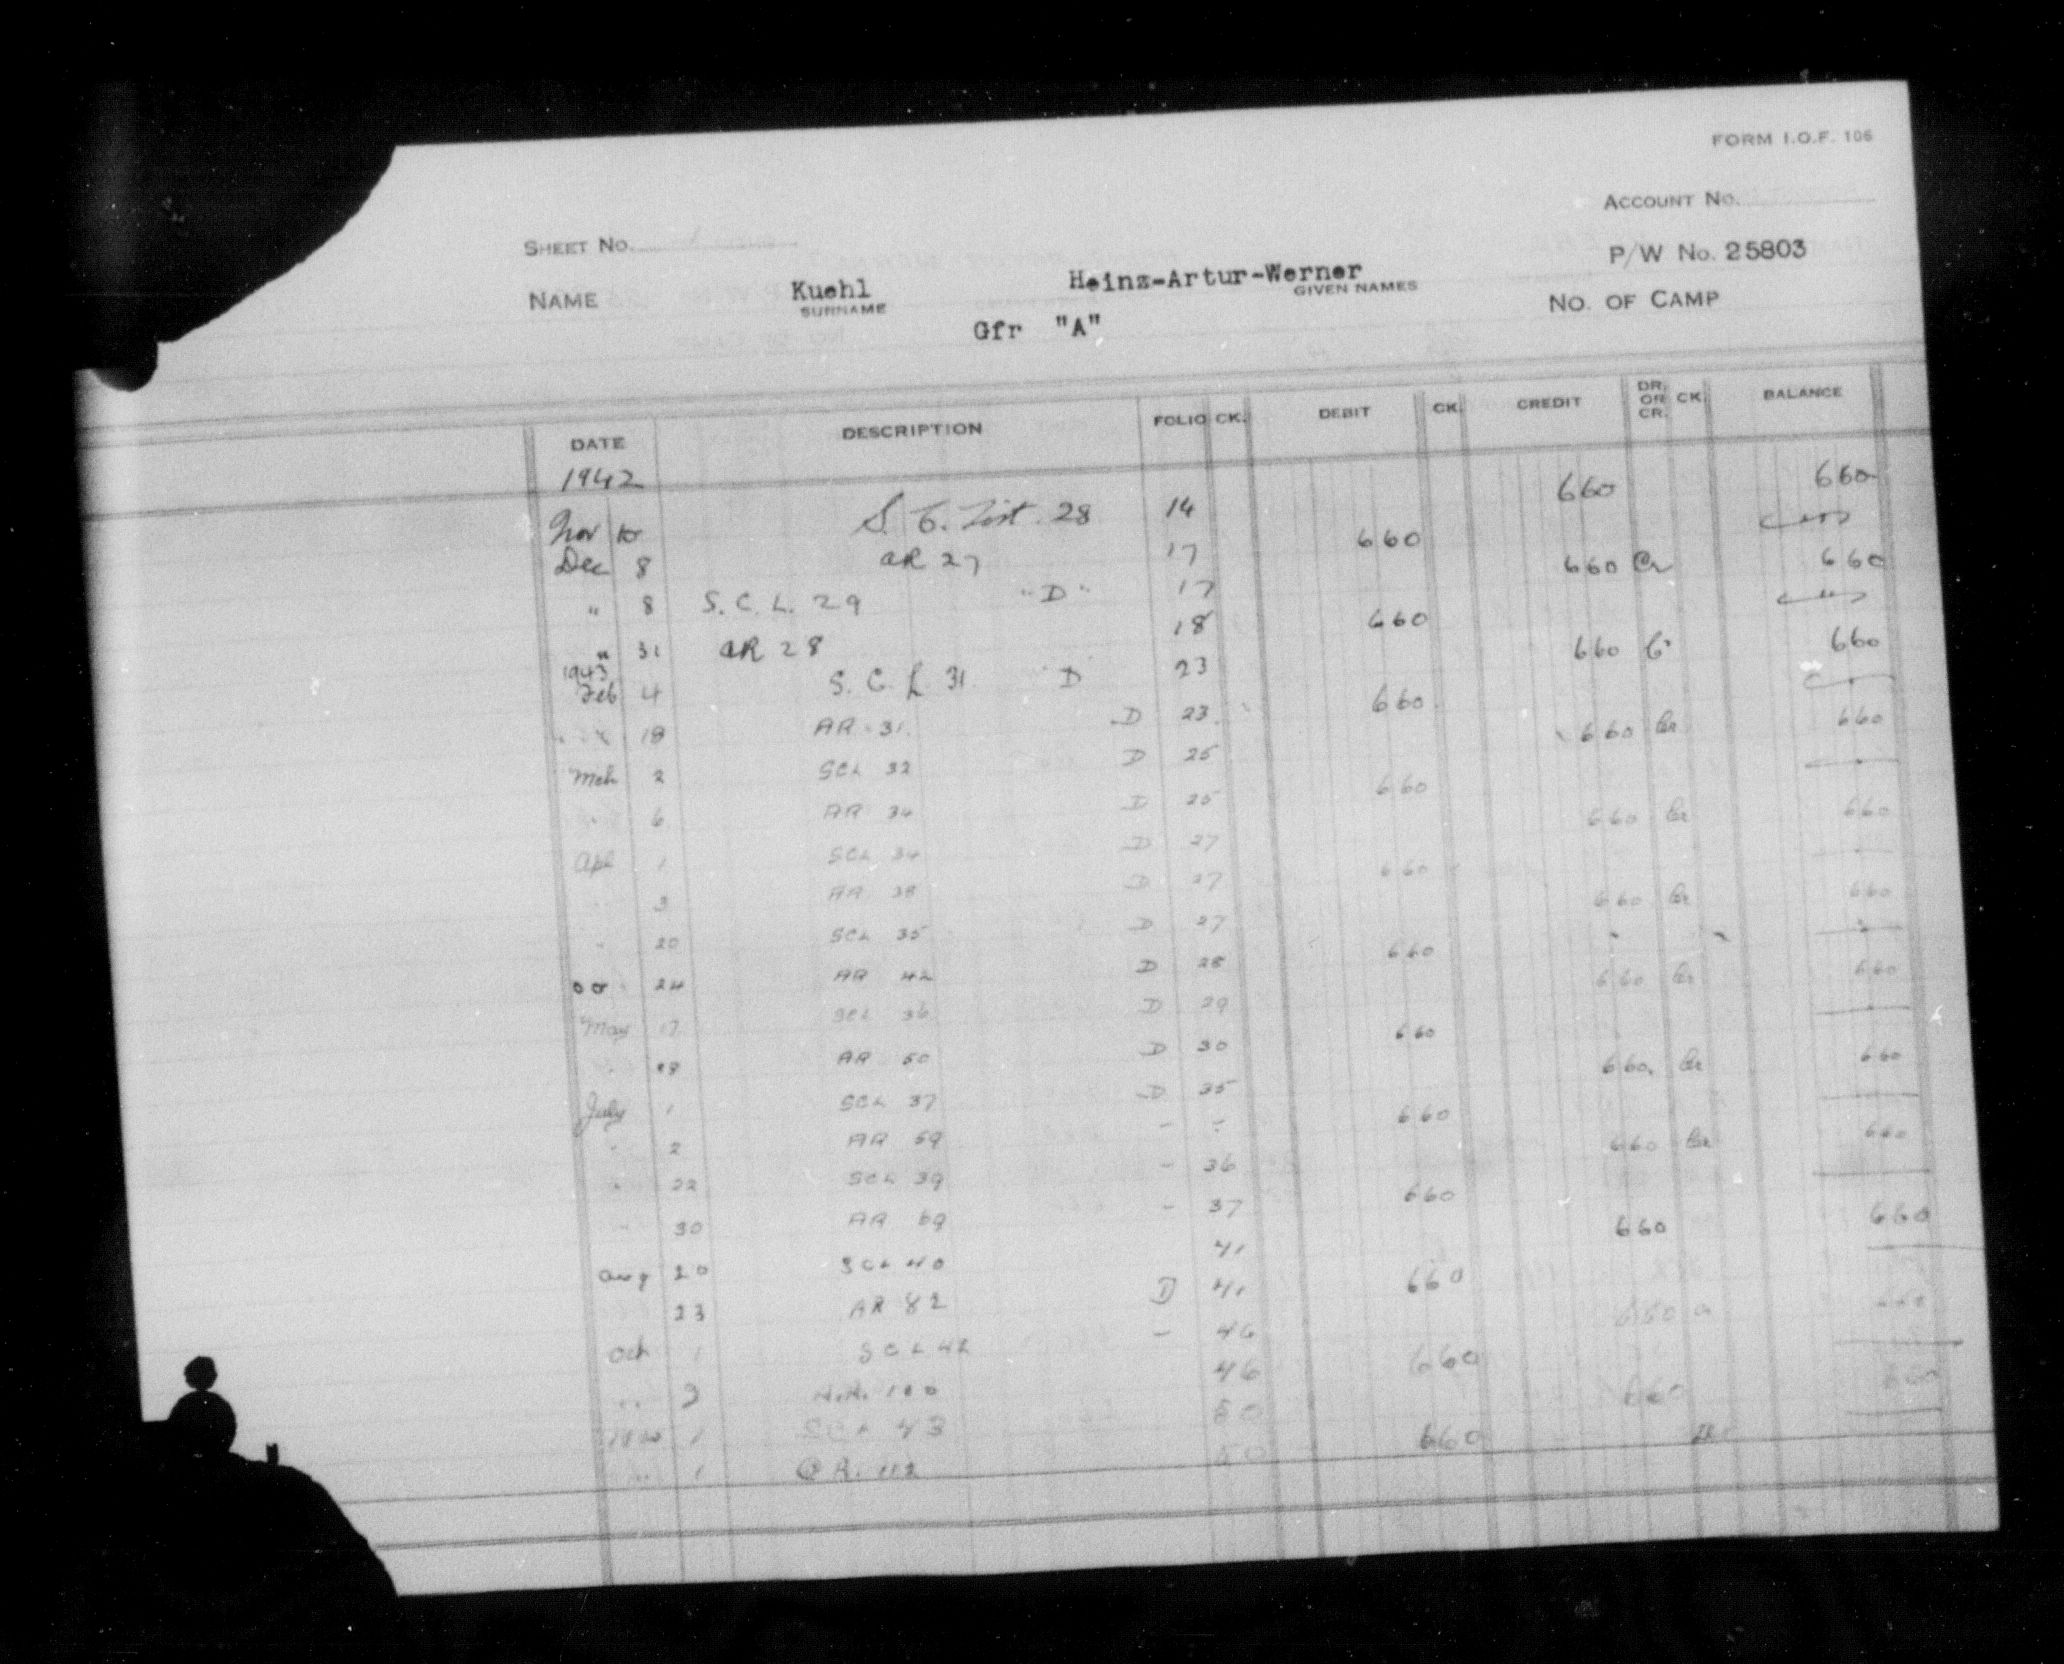 FORM I.O.F. 106
SHEET NO. ACCOUNT NO.
P/W No. 25803
NAME Kuehl Heinz-Artur-Werner
SURNAME GIVEN NAMES
NO. OF CAMP
Gfr "A"
DATE DESCRIPTION FOLIO CK. DEBIT CK. CREDIT DR. OR CR. CK. BALANCE
1942
Nov S. C. List 28 14 660 660
Dec 8 AR 27 17 660
" 8 S. C. L. 29 "D" 17 660 Cr 660
" 31 AR 28 18 660
1943
Feb 4 S. C. L. 31 D 23 660 Cr 660
18 AR 31. D 23 660
Mch 2 SCL 32 D 25 660 Cr 660
6 AR 34 D 25 660
Apl 1 SCL 34 D 27 660 Cr 660
3 AR 38 D 27 660
20 SCL 35 D 27 660 Cr 660
24 AR 42 D 28 660
May 17 SCL 36 D 29 660 Cr 660
28 AR 50 D 30 660
July 1 SCL 37 D 35 660. Cr 660
2 AR 59 - - 660
22 SCL 39 - 36 660 Cr 660
30 AR 69 - 37 660
Aug 20 SCL 40 41 660 660
23 AR 82 D 41 660
Oct 1 SCL 42 - 46 660 660
" 3 A.R. 100 46 660
1 SCL 43 50 660 660
1 AR. 112 50 660